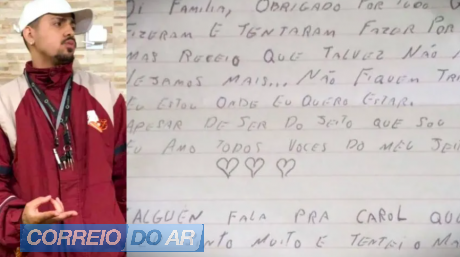 OI FAMILIA, OBRIGADO POR TUDO
FIZERAM E TENTARAM FAZER POR
MAS RECEIO QUE TALVEZ NÃO
VEJAMOS MAIS... NÃO FIQUEM
EU ESTOU ONDE EU QUERO ESTAR.
APESAR DE SER DO JEITO QUE SOU
EU AMO TODOS VOCES DO MEU JEI
ALGUEN FALA PRA CAROL QUE
NTO MUITO E TENTEI O MA
CORREIO DO AR